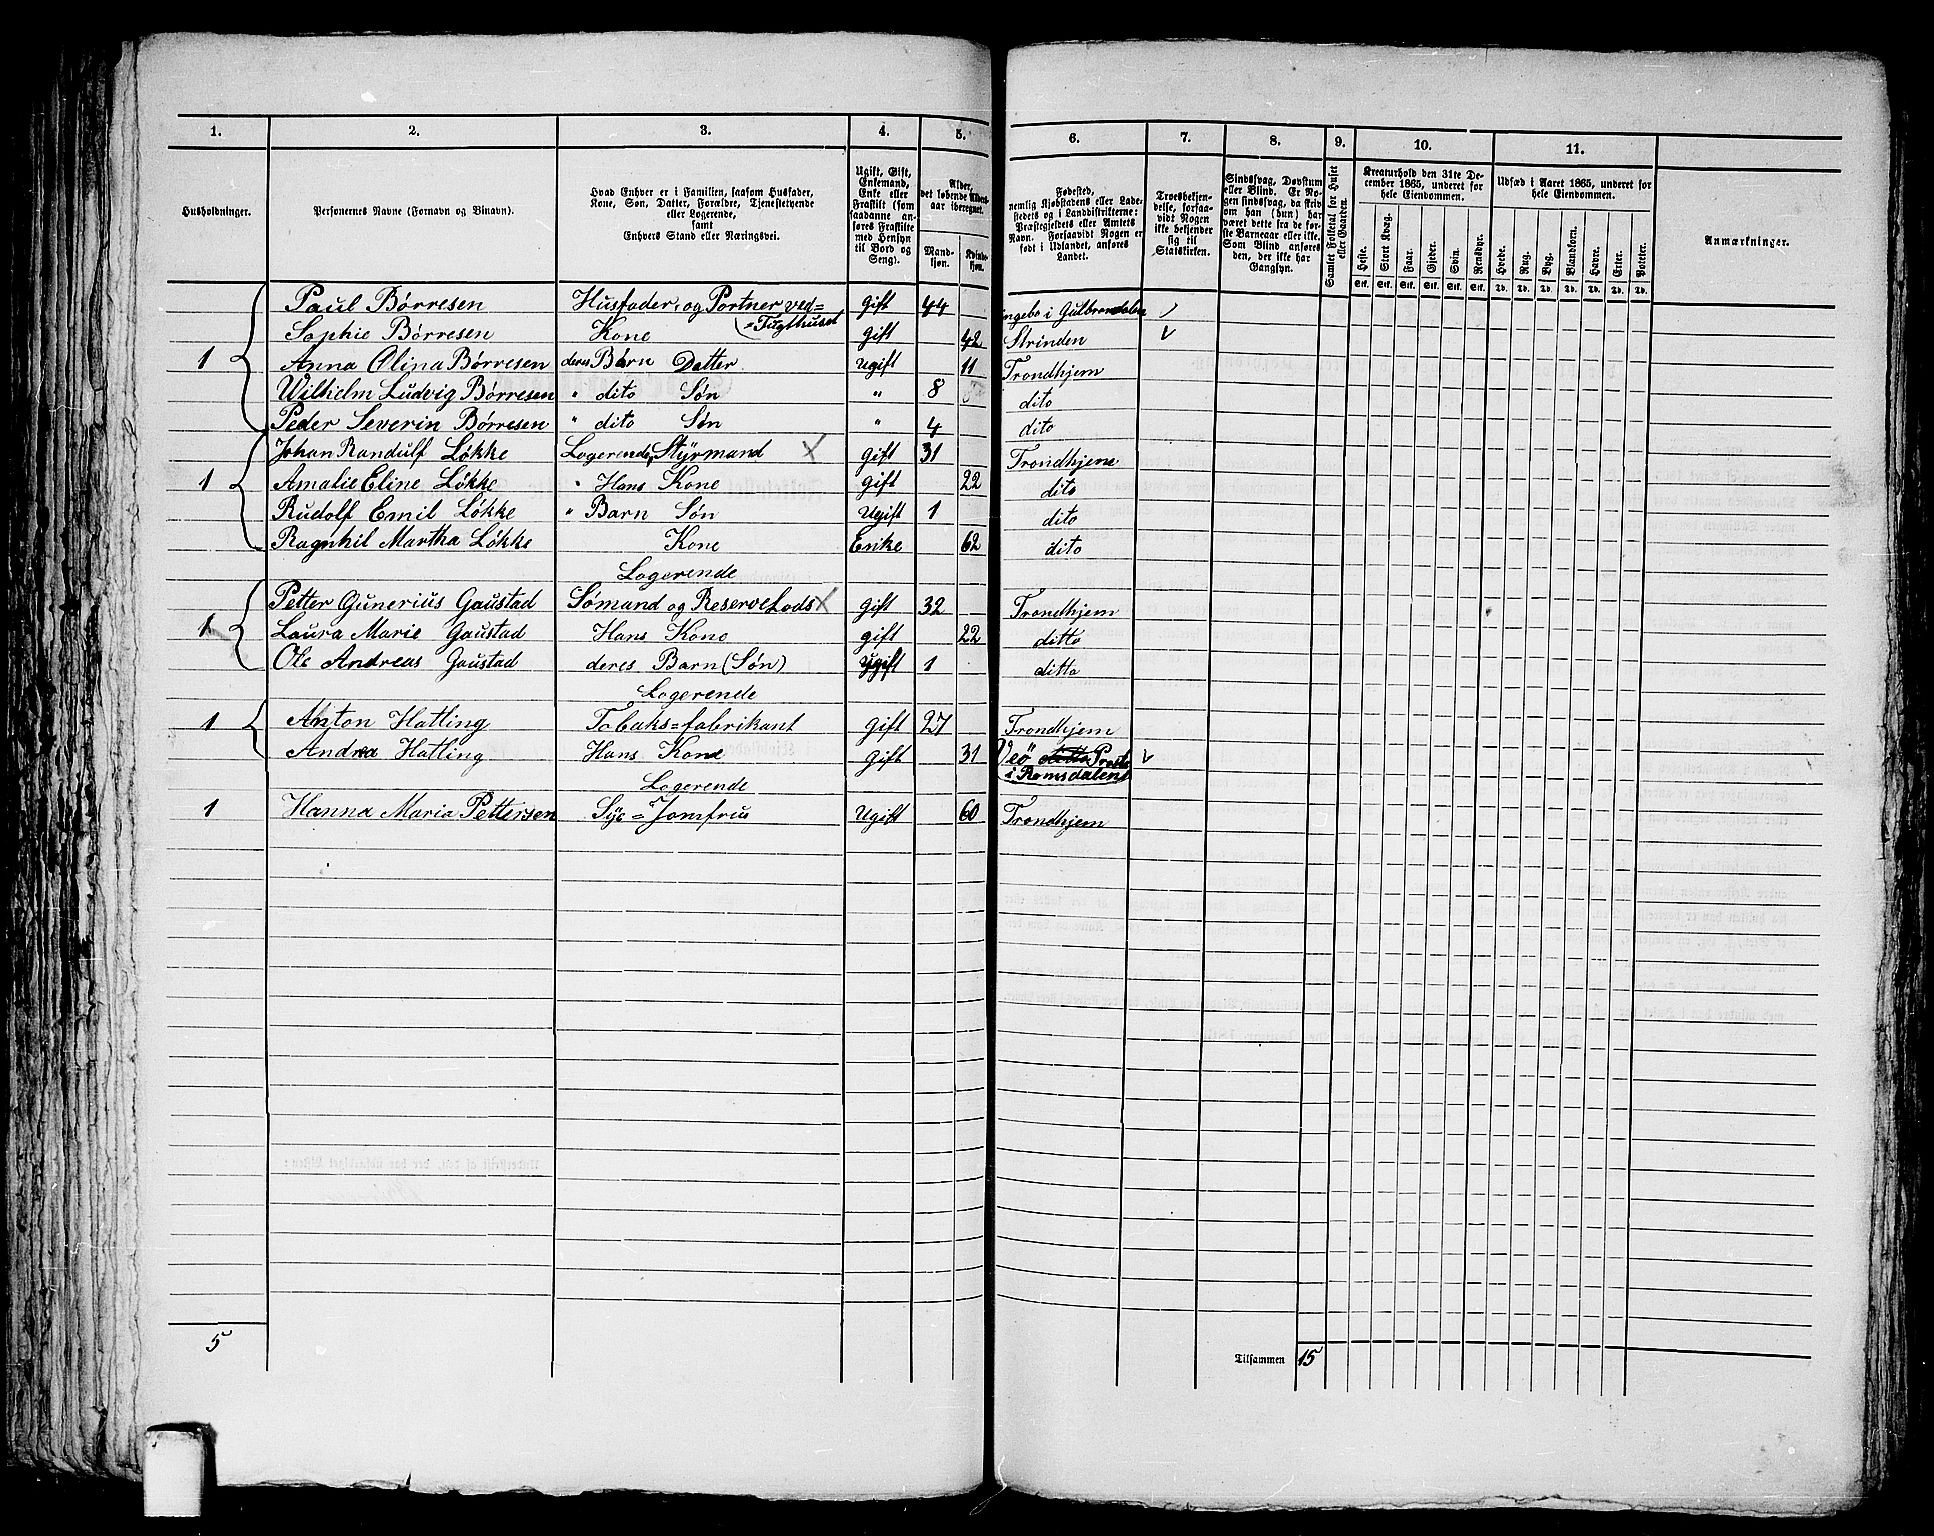 1. 2. 3. 4. 5. 6. 7. 8. 9. 10. 11.
Husholdninger.
Personernes Navne (Fornavn og Binavn).
Hvad Enhver er i Familien, saasom Husfader,
Kone, Søn, Datter, Forældre, Tjenestetyende
eller Logerende,
samt
Enhvers Stand eller Næringsvei.
Ugift, Gift,
Enkemand,
Enke eller
Fraskilt (som
saadanne an-
føres Fraskilte
med Hensyn
til Bord og
Seng).
Alder,
det løbende Alders-
aar iberegnet.
Mand-
kjøn.
Kvinde-
kjøn.
Fødested,
nemlig Kjøbstadens eller Lade-
stedets og i Landdistrikterne:
Præstegjeldets eller Amtets
Navn. Forsaavidt Nogen er
født i Udlandet, anføres
Landet.
Troesbekjen-
delse, forsaa-
vidt Nogen
ikke bekjender
sig til
Statskirken.
Sindssvag, Døvstum
eller Blind. Er No-
gen sindssvag, da skriv
om han (hun) har
været dette fra de før-
ste Barneaar eller ikke.
Som Blind anføres
den, der ikke har
Gangsyn.
Samlet Folketal for Huset
eller Gaarden.
Kreaturhold den 31te De-
cember 1865, underet for
hele Eiendommen.
Heste. Stort Kvæg. Faar. Gjeder. Svin. Rensdyr.
Stk. Stk. Stk. Stk. Stk. Stk.
Udsæd i Aaret 1865, underet for
hele Eiendommen.
Hvede. Rug. Byg. Blandkorn. Havre. Erter. Poteter.
Td. Td. Td. Td. Td. Td. Td.
Anmærkninger.
Paul Børresen Husfader, og Portner ved= Gift 44 ingebo i Gulbrandalen
=Tugthuset
Sophie Børresen Kone Gift 42 Strinden
1 Anna Olina Børresen deres Barn Datter Ugift 11 Trondhjem
Wilhelm Ludvig Børresen " dito Søn " 8 dito
Peder Severin Børresen " dito Søn " 4 dito
Johan Randulf Løkke Logerende, Styrmand X Gift 31 Trondhjem
1 Amalie Eline Løkke " Hans Kone gift 22 dito
Rudolf Emil Løkke " Barn Søn Ugift 1 dito
Ragnhil Martha Løkke Kone Enke 62 dito
Logerende
Petter Gunerius Gaustad Sømand og Reservelods X Gift 32 Trondhjem
1 Laura Marie Gaustad Hans Kone gift 22 ditto
Ole Andreas Gaustad deres Barn (Søn) Ugift 1 ditto
Logerende
1 Anton Hatling Tobaks=fabrikant Gift 27 Trondhjem
Andrea Hatling Hans Kone Gift 31 Veö ditto
i Romsdalen
Logerende
1 Hanna Maria Pettersen Sÿe=Jomfru Ugift 60 Trondhjem
5
Tilsammen 15